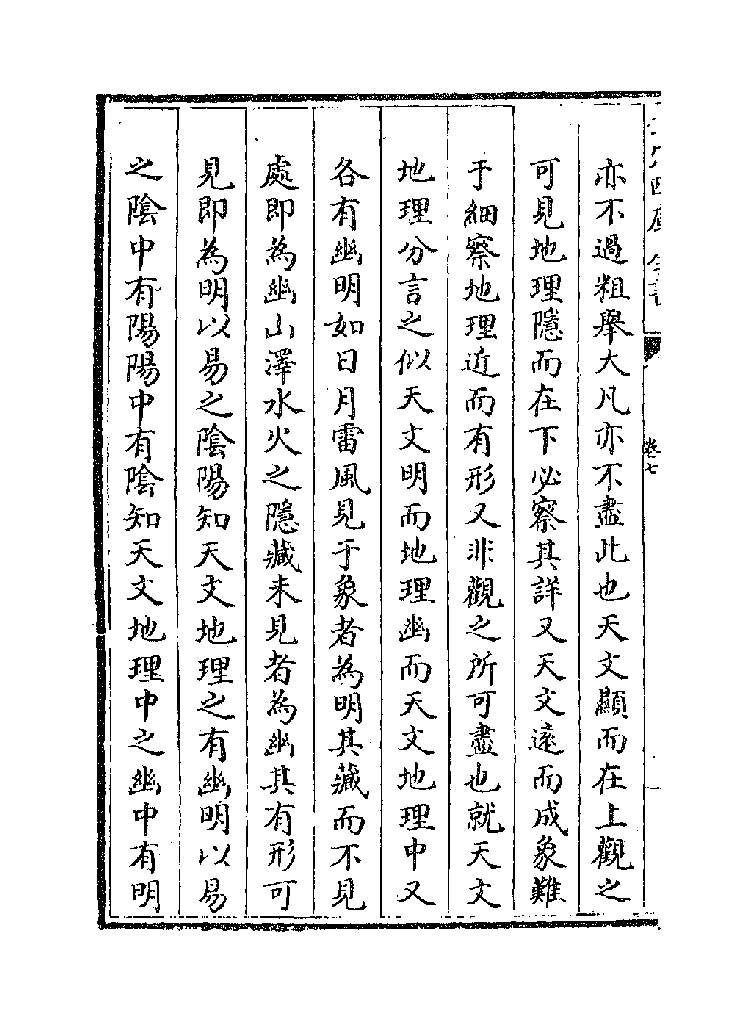 亦不過粗舉大凡亦不盡此也天文顯而在上觀之
可見地理隱而在下必察其詳又天文遠而成象難
于細察地理近而有形又非觀之所可盡也就天文
地理分言之似天文明而地理幽而天文地理中又
各有幽明如日月雷風見于象者為明其藏而不見
處即為幽山澤水火之隱藏未見者為幽其有形可
見即為明以易之陰陽知天文地理之有幽明以易
之陰中有陽陽中有陰知天文地理中之幽中有明
卷七